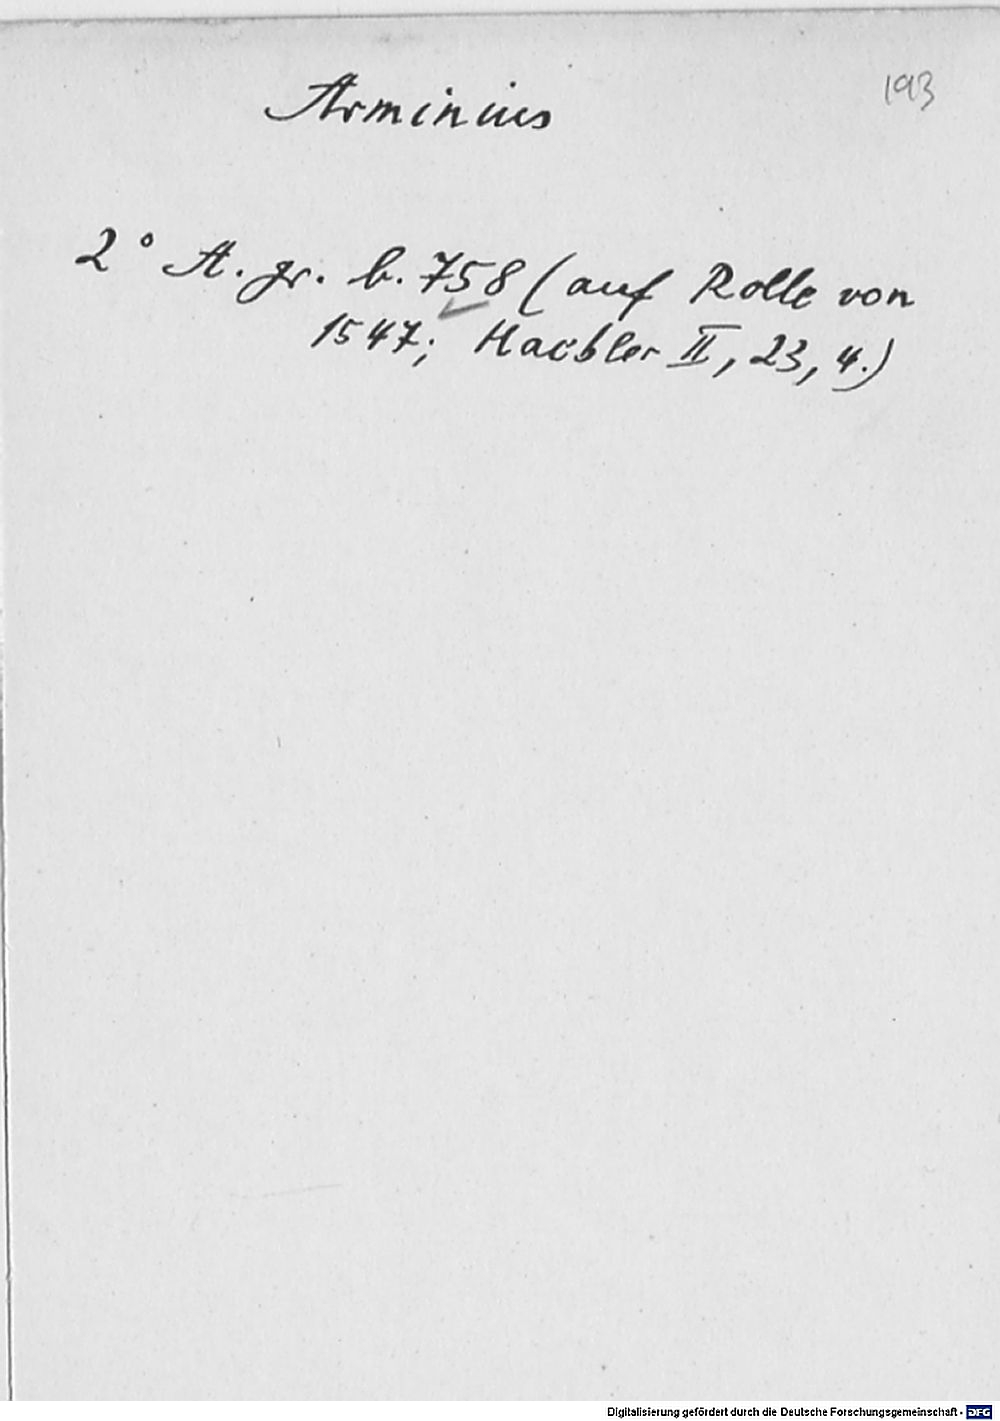 193
Arminius
2° A. gr. b. 758 (auf Rolle von
1547; Haebler II, 23, 4.)
Digitalisierung gefördert durch die Deutsche Forschungsgemeinschaft - DFG